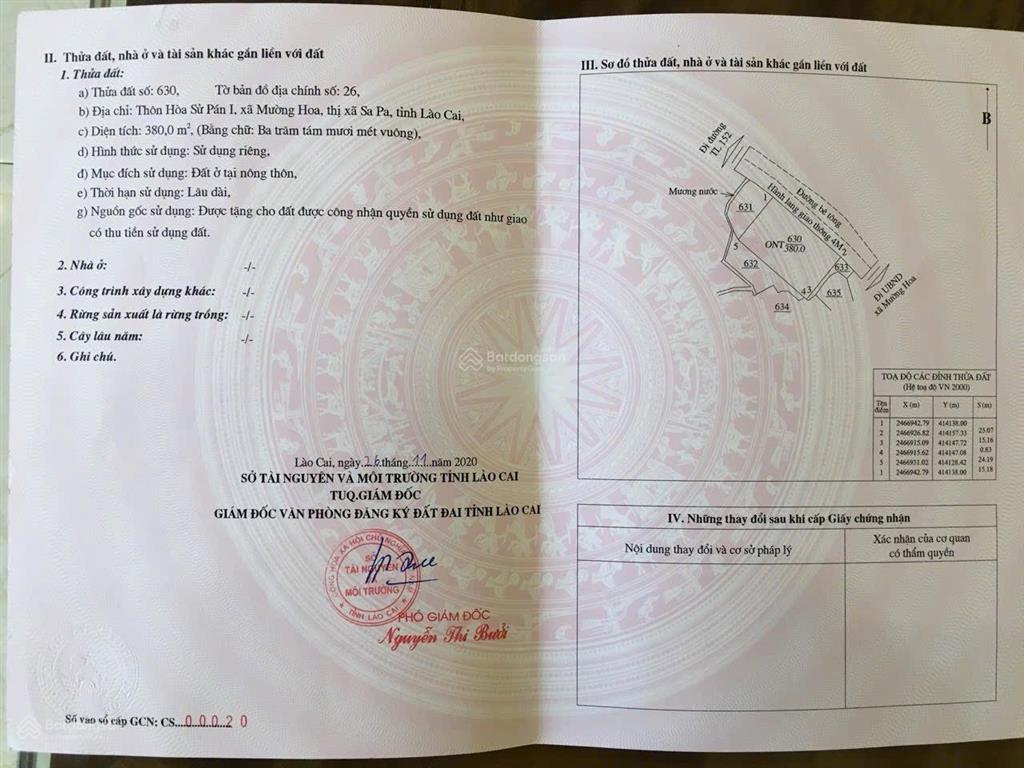 II. Thửa đất, nhà ở và tài sản khác gắn liền với đất
1. Thửa đất:
a) Thửa đất số: 630, Tờ bản đồ địa chính số: 26,
b) Địa chỉ: Thôn Hòa Sử Pán I, xã Mường Hoa, thị xã Sa Pa, tỉnh Lào Cai,
c) Diện tích: 380,0 m², (Bằng chữ: Ba trăm tám mươi mét vuông),
d) Hình thức sử dụng: Sử dụng riêng,
đ) Mục đích sử dụng: Đất ở tại nông thôn,
e) Thời hạn sử dụng: Lâu dài,
g) Nguồn gốc sử dụng: Được tặng cho đất được công nhận quyền sử dụng đất như giao
có thu tiền sử dụng đất.
2. Nhà ở: -/-
3. Công trình xây dựng khác: -/-
4. Rừng sản xuất là rừng trồng: -/-
5. Cây lâu năm: -/-
6. Ghi chú.
Lào Cai, ngày 26 tháng 11 năm 2020
SỞ TÀI NGUYÊN VÀ MÔI TRƯỜNG TỈNH LÀO CAI
TUQ.GIÁM ĐỐC
GIÁM ĐỐC VĂN PHÒNG ĐĂNG KÝ ĐẤT ĐAI TỈNH LÀO CAI
SỞ
TÀI NGUYÊN
MÔI TRƯỜNG
TỈNH LÀO CAI
PHÓ GIÁM ĐỐC
Nguyễn Thị Bưởi
Số vào sổ cấp GCN: CS....00020
III. Sơ đồ thửa đất, nhà ở và tài sản khác gắn liền với đất
B
Đi đường
TL 152
Mương nước
Đường bê tông
Hành lang giao thông 4M
631
1
2
630
ONT 380.0
5
632
633
43
635
634
Đi UBND
xã Mường Hoa
TOẠ ĐỘ CÁC ĐỈNH THỬA ĐẤT
(Hệ toạ độ VN 2000)
Tên điểm X (m) Y (m) S (m)
1 2466942.79 414138.00
25.07
2 2466926.82 414157.33
15.16
3 2466915.09 414147.72
0.83
4 2466915.62 414147.08
24.19
5 2466931.02 414128.42
15.18
1 2466942.79 414138.00
IV. Những thay đổi sau khi cấp Giấy chứng nhận
Nội dung thay đổi và cơ sở pháp lý
Xác nhận của cơ quan
có thẩm quyền
Batdongsan
by PropertyGuru
Batdongsan